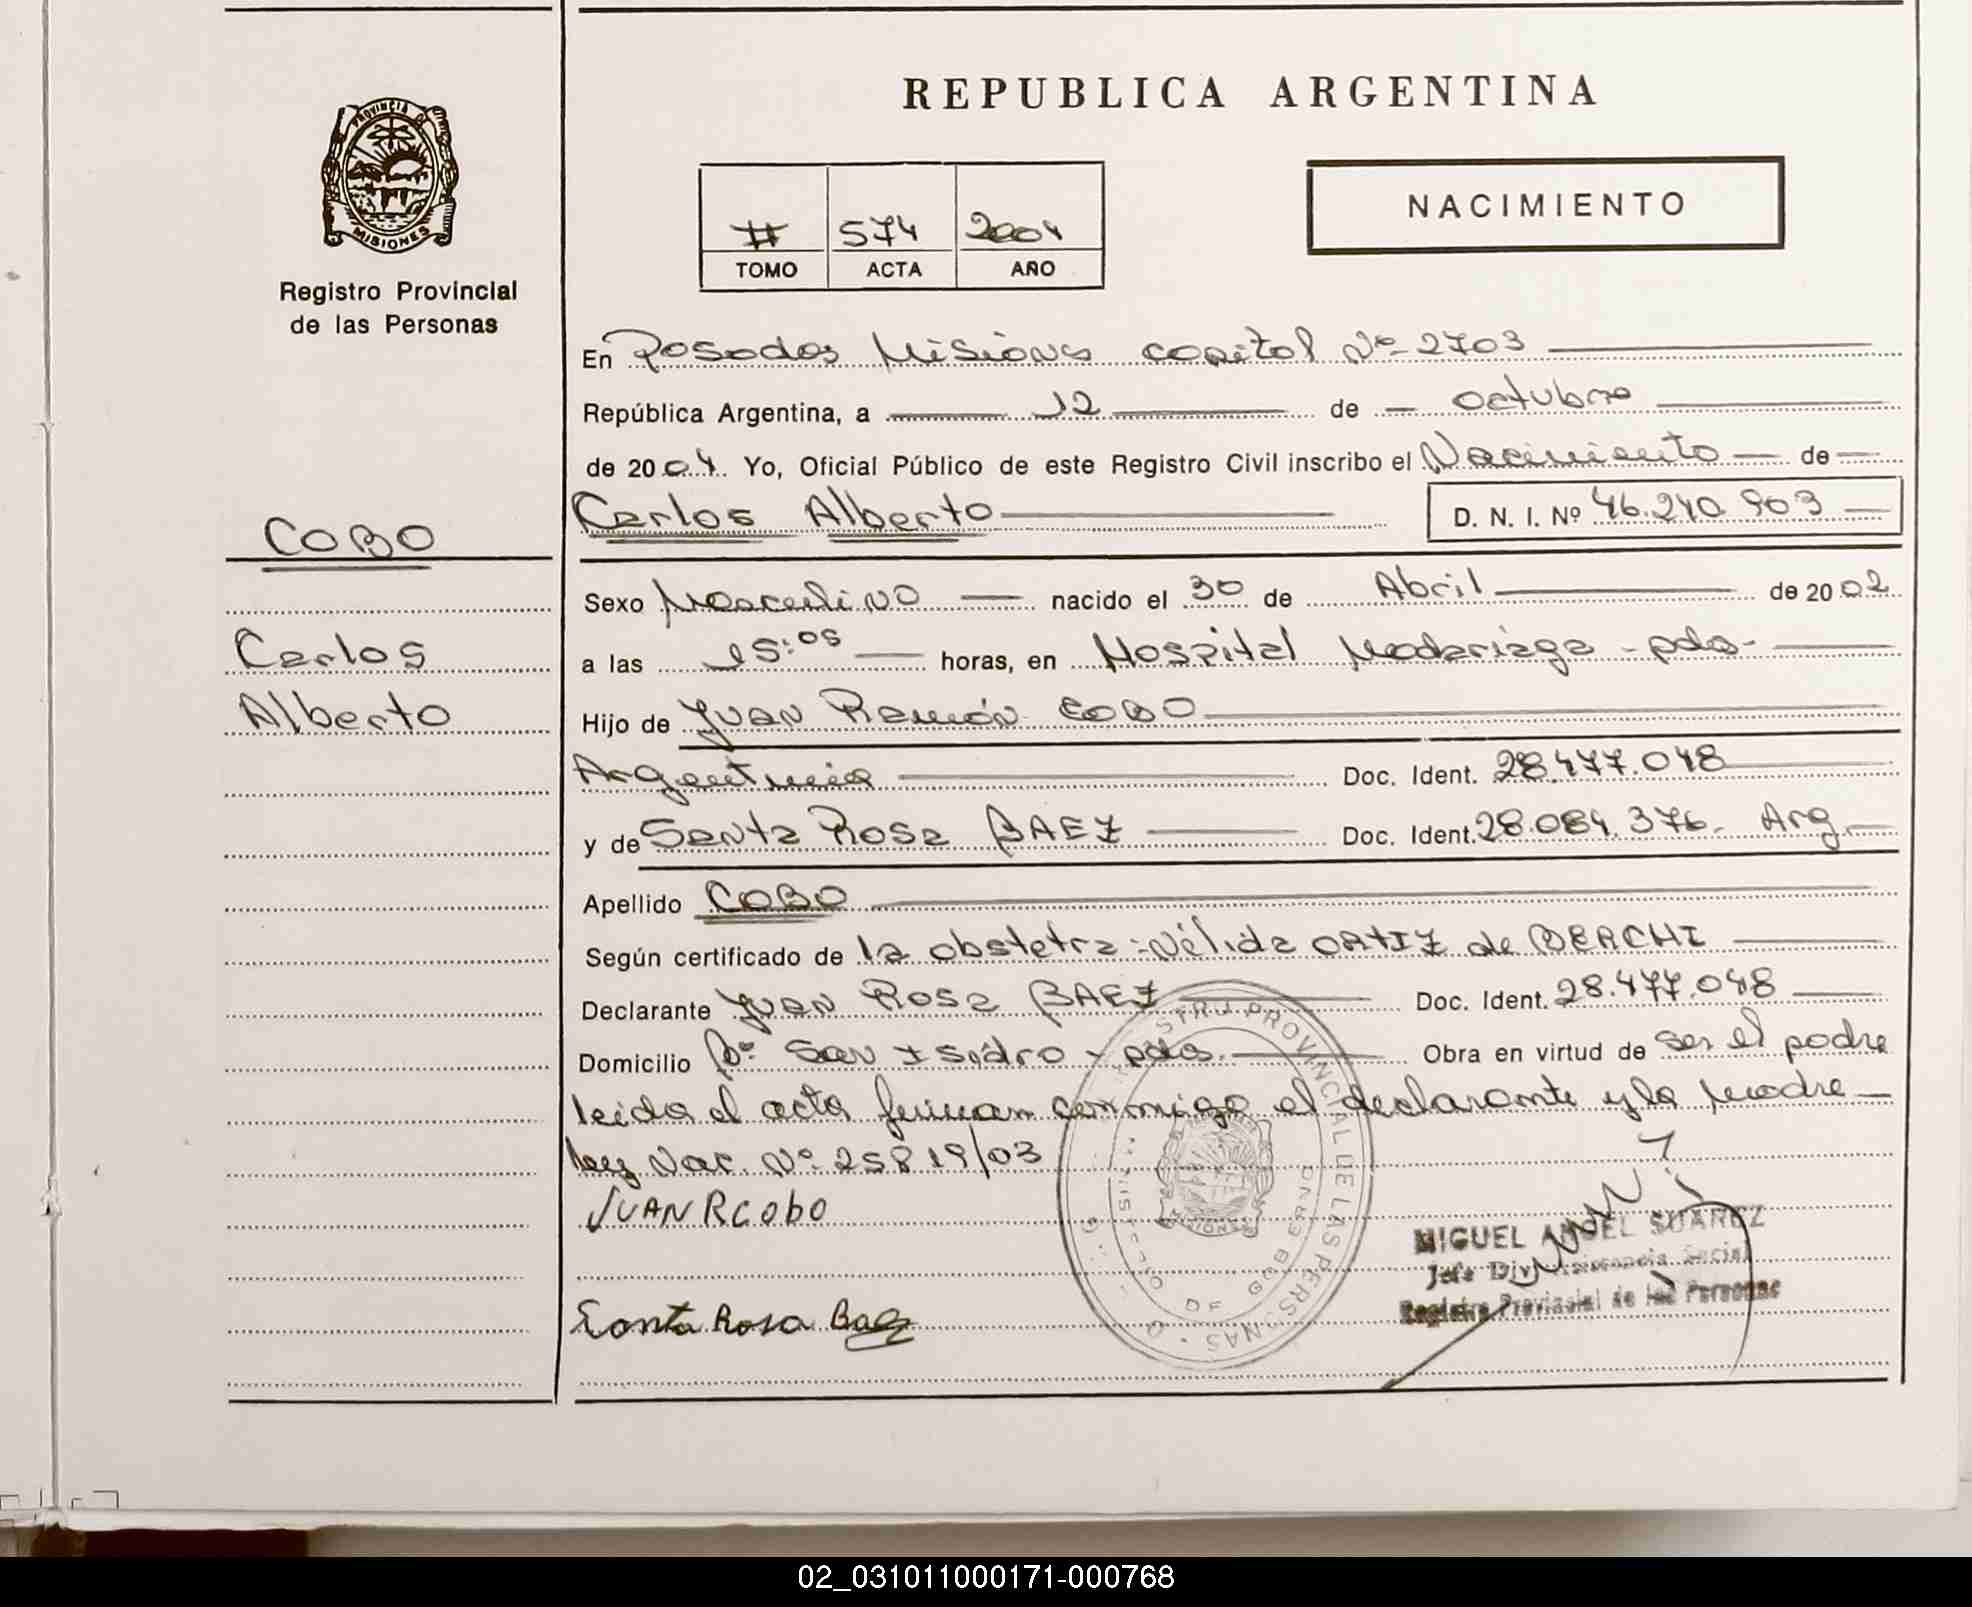 REPUBLICA ARGENTINA
PROVINCIA DE
MISIONES
Registro Provincial
de las Personas
574 2004
TOMO ACTA AÑO
NACIMIENTO
En Posadas Misiones capital Nº 2703
República Argentina, a 12 de octubre
de 2004. Yo, Oficial Público de este Registro Civil inscribo el Nacimiento de
Carlos Alberto D. N. I. Nº 46.240.903
COBO
Carlos
Alberto
Sexo Masculino nacido el 30 de Abril de 2002
a las 15:05 horas, en Hospital Madariaga - pdas-
Hijo de Juan Ramón COBO
Argentina Doc. Ident. 28.477.048
y de Santa Rosa BAEZ Doc. Ident. 28.084.376. Arg.
Apellido COBO
Según certificado de la obstetra - Nélida ORTIZ de BERCHI
Declarante Juan Rosa BAEZ Doc. Ident. 28.477.048
Domicilio Bº San Isidro - pdas. Obra en virtud de ser el padre
leida el acta firman conmigo el declarante y la madre
ley Nac. Nº 25819/03
JUAN R CObO
Santa Rosa Baez
REGISTRO PROVINCIAL DE LAS PERSONAS
MISIONES
MIGUEL ANGEL SUAREZ
Jefe Div. Asistencia Social
Registro Provincial de las Personas
02_031011000171-000768